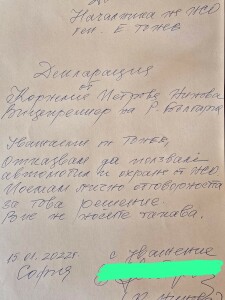 До
Началника на НСО
ген. Е. Тонев
Декларация
от
Корнелия Петрова Нинова
Вицепремиер на Р. България
Уважаеми г-н Тонев,
Отказвам да ползвам
автомобил и охрана от НСО.
Поемам лично отговорността
за това решение.
Вие не носите такава.
15.01.2022г.
София
С уважение